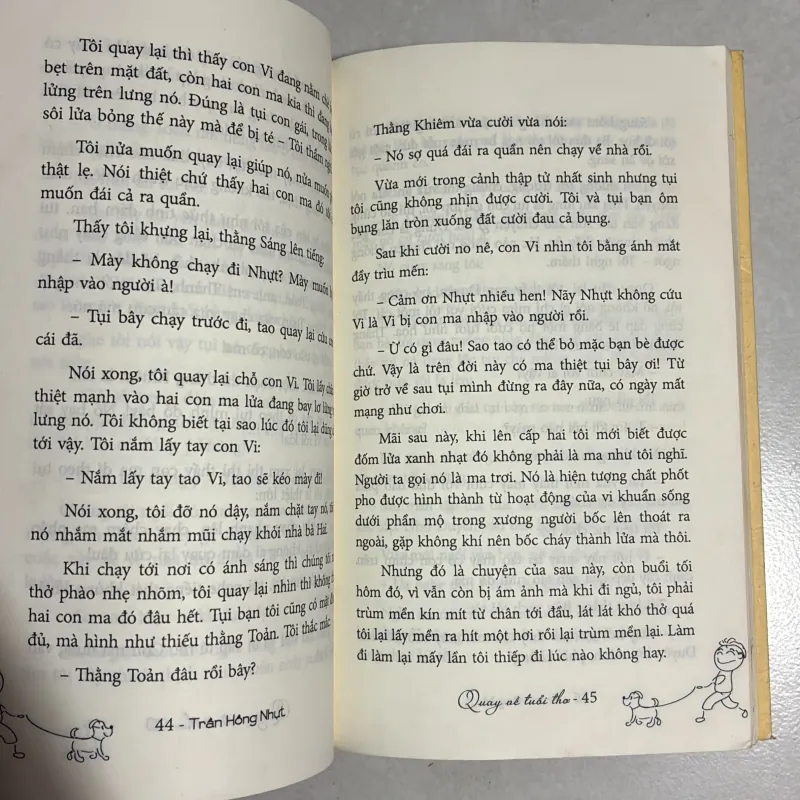 Tôi quay lại thì thấy con Vi đang nằm
bẹt trên mặt đất, còn hai con ma kia thì đang
lửng trên lưng nó. Đúng là tụi con gái, trong
sôi lửa bỏng thế này mà để bị té – Tôi thầm
Tôi nửa muốn quay lại giúp nó, nửa muốn
thật lẹ. Nói thiệt chứ thấy hai con ma đó tôi
muốn đái cả ra quần.
Thấy tôi khựng lại, thằng Sáng lên tiếng:
– Mày không chạy đi Nhựt? Mày muốn
nhập vào người à!
– Tụi bây chạy trước đi, tao quay lại cứu
cái đã.
Nói xong, tôi quay lại chỗ con Vi. Tôi lấy
thiệt mạnh vào hai con ma lửa đang bay lơ lửng
lưng nó. Tôi không biết tại sao lúc đó tôi lại
tới vậy. Tôi nắm lấy tay con Vi:
– Nắm lấy tay tao Vi, tao sẽ kéo mày đi!
Nói xong, tôi đỡ nó dậy, nắm chặt tay nó,
nó nhắm mắt nhắm mũi chạy khỏi nhà bà Hai.
Khi chạy tới nơi có ánh sáng thì chúng tôi
thở phào nhẹ nhõm, tôi quay lại nhìn thì không
hai con ma đó đâu hết. Tụi bạn tôi cũng có mặt
đủ, mà hình như thiếu thằng Toản. Tôi thắc mắc:
– Thằng Toản đâu rồi bây?
44 - Trần Hồng Nhựt
Thằng Khiêm vừa cười vừa nói:
– Nó sợ quá đái ra quần nên chạy về nhà rồi.
Vừa mới trong cảnh thập tử nhất sinh nhưng tụi
tôi cũng không nhịn được cười. Tôi và tụi bạn ôm
bụng lăn tròn xuống đất cười đau cả bụng.
Sau khi cười no nê, con Vi nhìn tôi bằng ánh mắt
đầy trìu mến:
– Cảm ơn Nhựt nhiều hen! Nãy Nhựt không cứu
Vi là Vi bị con ma nhập vào người rồi.
– Ừ có gì đâu! Sao tao có thể bỏ mặc bạn bè được
chứ. Vậy là trên đời này có ma thiệt tụi bây ơi! Từ
giờ trở về sau tụi mình đừng ra đây nữa, có ngày mất
mạng như chơi.
Mãi sau này, khi lên cấp hai tôi mới biết được
đốm lửa xanh nhạt đó không phải là ma như tôi nghĩ.
Người ta gọi nó là ma trơi. Nó là hiện tượng chất phốt
pho được hình thành từ hoạt động của vi khuẩn sống
dưới phần mộ trong xương người bốc lên thoát ra
ngoài, gặp không khí nên bốc cháy thành lửa mà thôi.
Nhưng đó là chuyện của sau này, còn buổi tối
hôm đó, vì vẫn còn bị ám ảnh mà khi đi ngủ, tôi phải
trùm mền kín mít từ chân tới đầu, lát lát khó thở quá
tôi lại lấy mền ra hít một hơi rồi lại trùm mền lại. Làm
đi làm lại mấy lần tôi thiếp đi lúc nào không hay.
Quay về tuổi thơ - 45